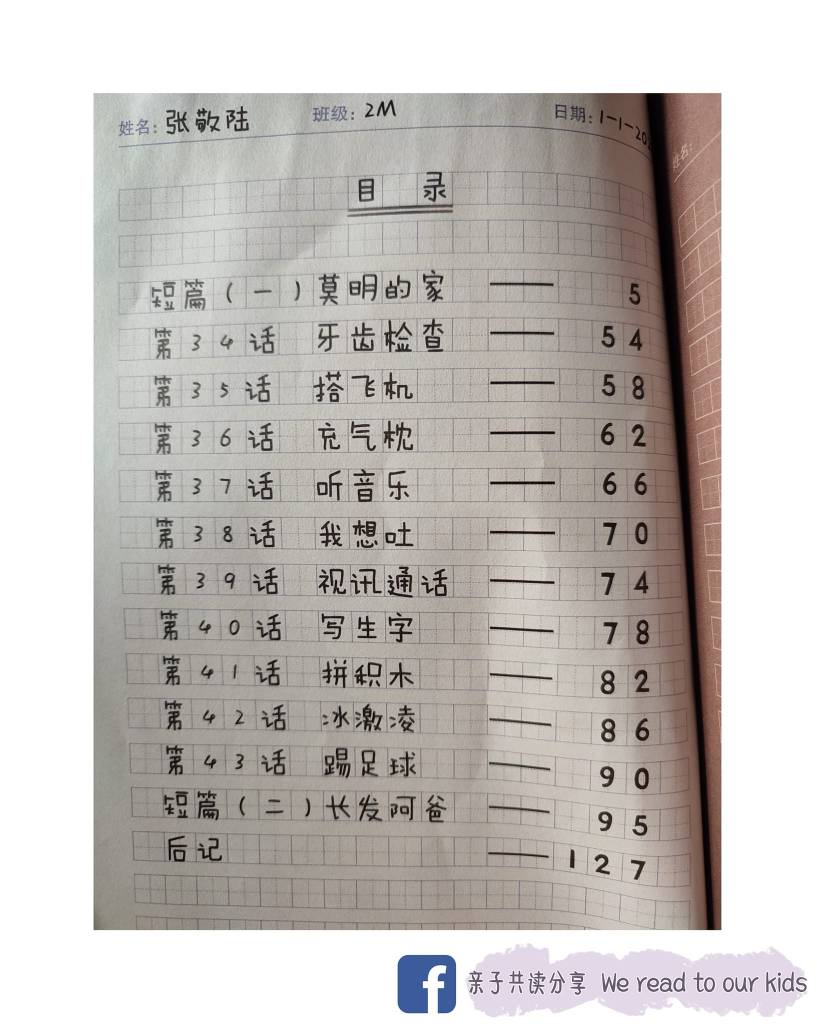 姓名: 张敬陆 班级: 2M 日期: 1-1-20
姓名:
目 录
短篇(一)莫明的家 —— 5
第34话 牙齿检查 —— 54
第35话 搭飞机 —— 58
第36话 充气枕 —— 62
第37话 听音乐 —— 66
第38话 我想吐 —— 70
第39话 视讯通话 —— 74
第40话 写生字 —— 78
第41话 拼积木 —— 82
第42话 冰激凌 —— 86
第43话 踢足球 —— 90
短篇(二)长发阿爸 —— 95
后记 —— 127
f 亲子共读分享 We read to our kids